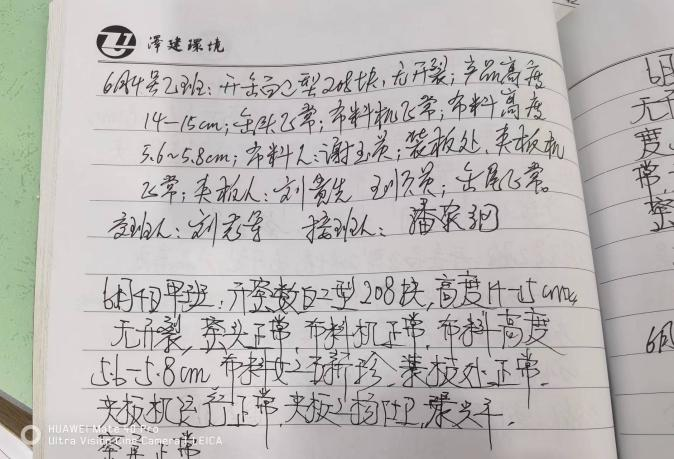 泽建環境
6月4号乙班:开窑白乙型208块,无开裂;产品高度
14-15cm;窑头正常;布料机正常;布料高度
5.6~5.8cm;布料人:谢玉英;装板处、夹板机
正常;夹板人:刘贵先 窑尾正常。
交班人:刘 接班人:潘
6月4日甲班:开窑数白乙型208块,高度14-15cm,
无开裂,窑头正常,布料机正常,布料高度
5.6-5.8cm 布料 新珍,装板处正常.
夹板机运行正常,夹板 杨
窑尾正常
6月
无开
度
常,
窑
6月
HUAWEI Mate 40 Pro
Ultra Vision Cine Camera | LEICA